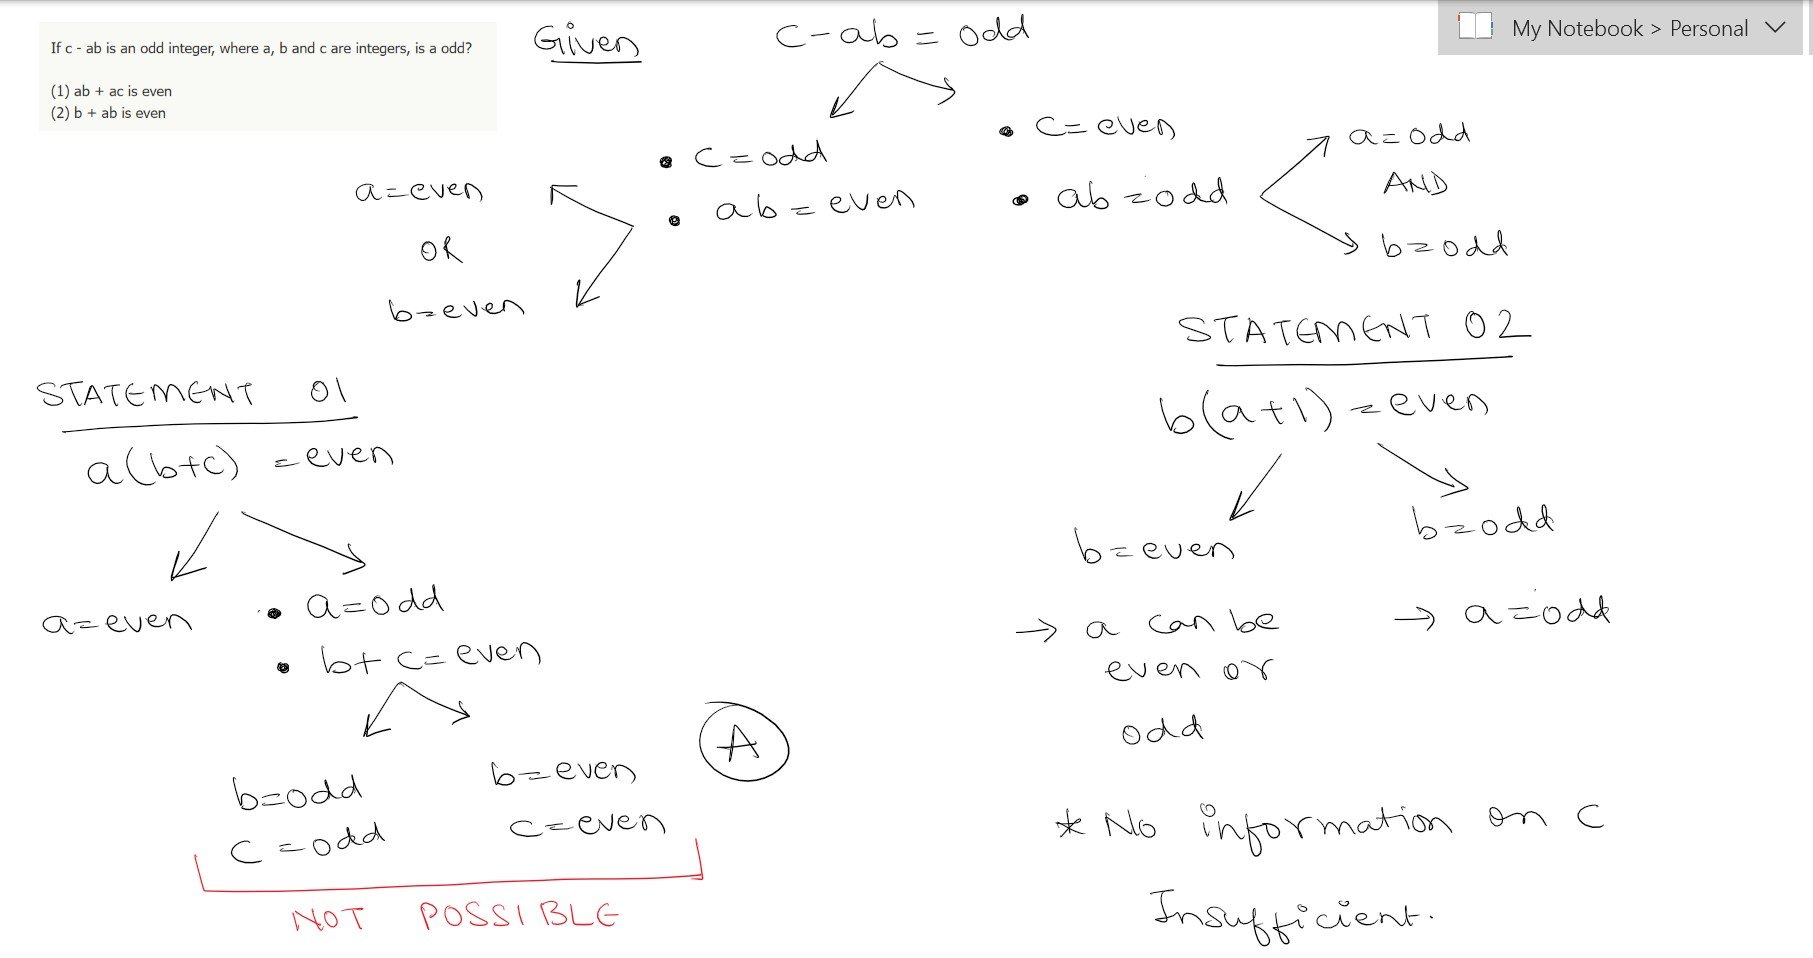 My Notebook > Personal
If c - ab is an odd integer, where a, b and c are integers, is a odd?
(1) ab + ac is even
(2) b + ab is even
Given
c-ab = odd
• c=odd
• ab = even
a=even
OR
b=even
• c= even
• ab = odd
a= odd
AND
b=odd
STATEMENT 01
a(b+c) =even
a=even
• a=odd
• b+ c= even
b=odd
c =odd
b=even
c=even
NOT POSSIBLE
A
STATEMENT 02
b(a+1) =even
b=even
→ a can be
even or
odd
b=odd
→ a=odd
* No information on c
Insufficient.